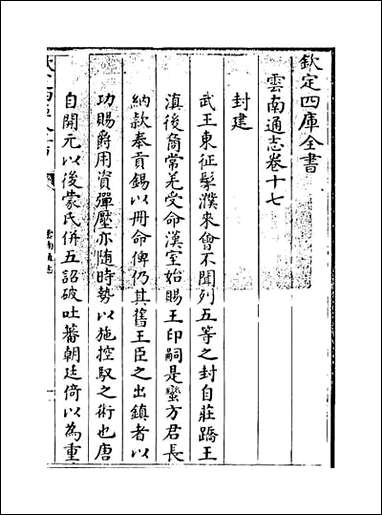 欽定四庫全書
雲南通志卷十七
封建
武王東征髳濮來會不聞列五等之封自莊蹻王
滇後裔常羌受命漢室始賜王印嗣是蠻方君長
納款奉貢錫以冊命俾仍其舊王臣之出鎮者以
功賜爵用資彈壓亦隨時勢以施控馭之術也唐
自開元以後蒙氏併五詔破吐蕃朝廷倚以為重
雲南通志